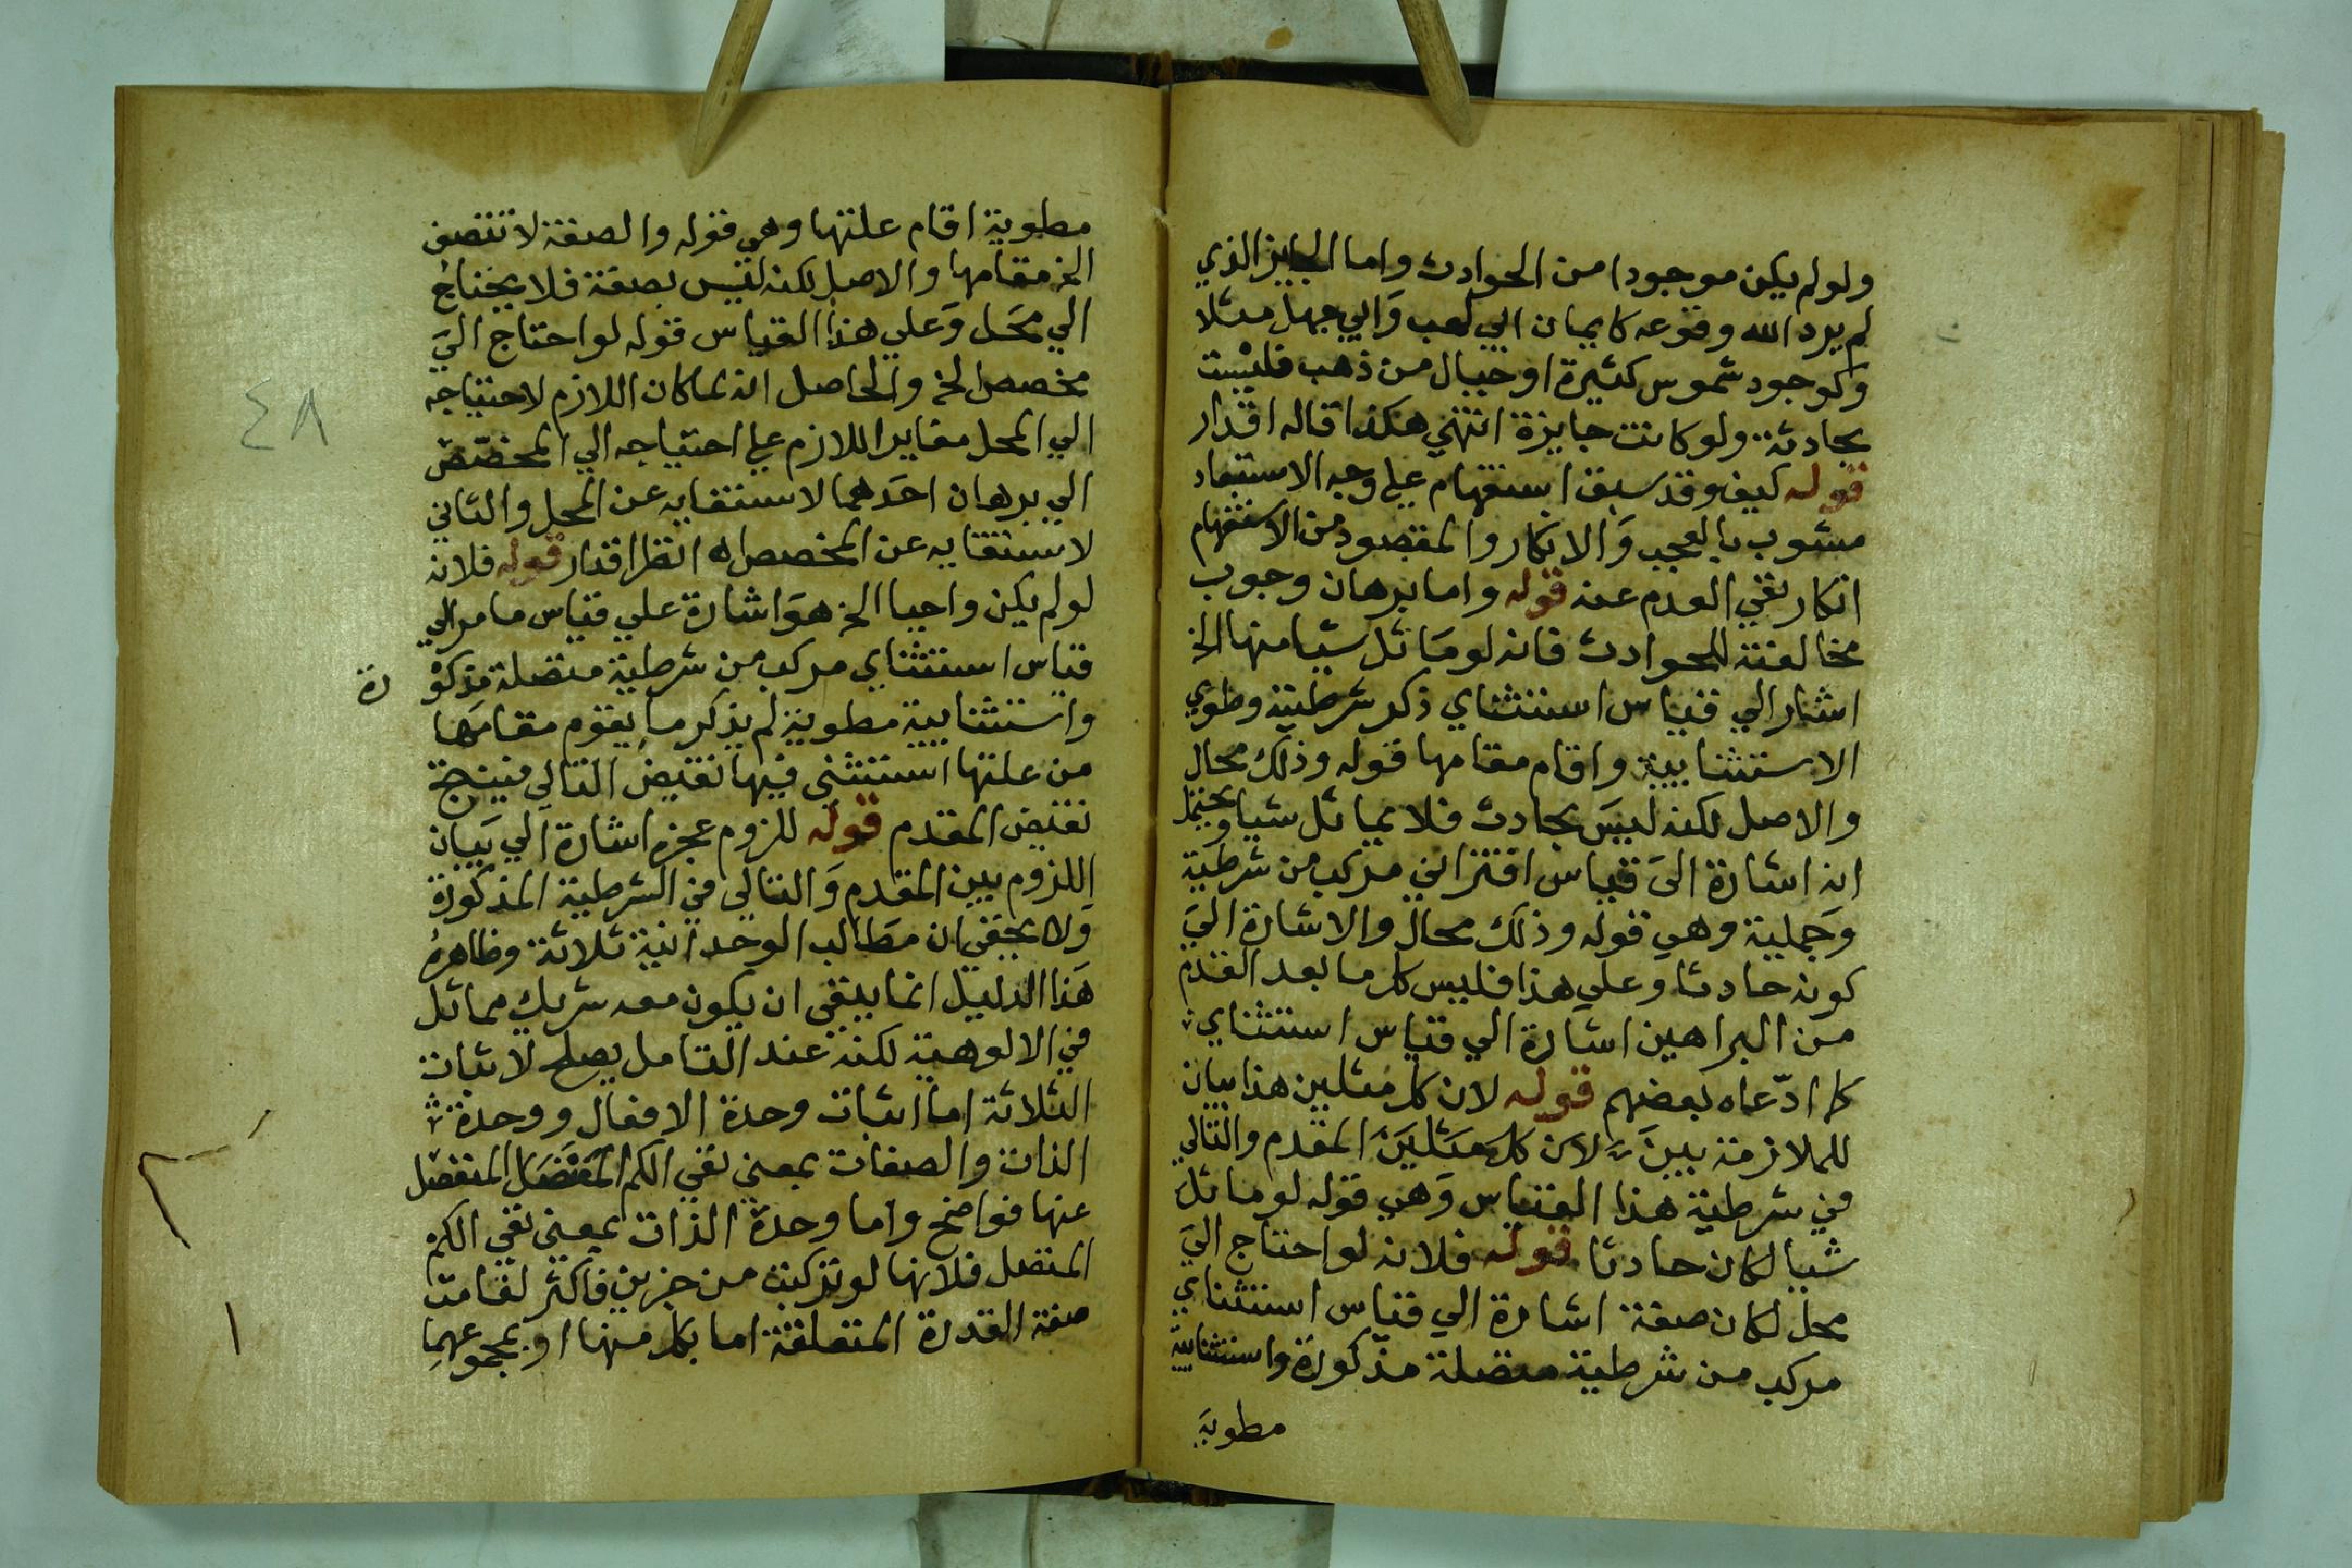 ولو لم يكن موجودا من الحوادث واما الجايز الذي
لم يرد الله وقوعه كايمان ابي لهب وابي جهل مثلا
وكوجود شموس كثيرة او جبال من ذهب فليست
بحادثة ولو كانت جايزة انتهي هكذا قاله اقدار
قوله كيف وقد سبق استفهام علي وجه الاستبعاد
مشوب بالعجب والانكار والمقصود من الاستفهام
انكار نفي العدم عنه قوله واما برهان وجوب
مخالفته للحوادث فانه لو ماثل شيا منها الخ
اشار الي قياس استثناي ذكر شرطيته وطوي
الاستثنايية واقام مقامها قوله وذلك محال
والاصل لكنه ليس بحادث فلا يماثل شيا ويحتمل
انه اشارة الي قياس اقتراني مركب من شرطية
وحملية وهي قوله وذلك محال والاشارة الي
كونه حادثا وعلي هذا فليس كل ما بعد القدم
من البراهين اشارة الي قياس استثناي
كما ادّعاه بعضهم قوله لان كل مثلين هذا بيان
للملازمة بين لان كل مثلين المقدم والتالي
في شرطية هذا القياس وهي قوله لو ماثل
شيا لكان حادثا قوله فلانه لو احتاج الي
محل لكان صفة اشارة الي قياس استثناي
مركب من شرطية متصلة مذكورة واستثنايية
مطوية
مطوية اقام علتها وهي قوله والصفة لا تتصف
الخ مقامها والاصل لكنه ليس بصفة فلا يحتاج
الي محل وعلي هذا القياس قوله لو احتاج الي
مخصص الخ والحاصل انه لما كان اللازم لاحتياجه
الي المحل مغاير اللازم علي احتياجه الي المخصّص
الي برهان احدهما لاستغنايه عن المحل والثاني
لاستغنايه عن المخصص اه انظر اقدار قوله فلانه
لو لم يكن واحدا الخ هو اشارة علي قياس ما مر الي
قياس استثناي مركب من شرطية متصلة مذكو رة
واستثنايية مطوية لم يذكر ما يقوم مقامها
من علتها استثني فيها نقيض التالي فينتج
نقيض المقدم قوله للزوم عجزه اشارة الي بيان
اللزوم بين المقدم والتالي في الشرطية المذكورة
ولا يخفي ان مطالب الوحدانية ثلاثة وظاهر
هذا الدليل انما ينفي ان يكون معه شريك مماثل
في الالوهية لكنه عند التامل يصلح لاثبات
الثلاثة اما اثبات وحدة الافعال ووحدة
الذات والصفات بمعني نفي الكم المتصل المنفصل
عنها فواضح واما وحدة الذات بمعني نفي الكم
المتصل فلانها لو تركبت من جزين فاكثر لقامت
صفة القدرة المتعلقة اما بكل منها او بمجموعهما
٤٨